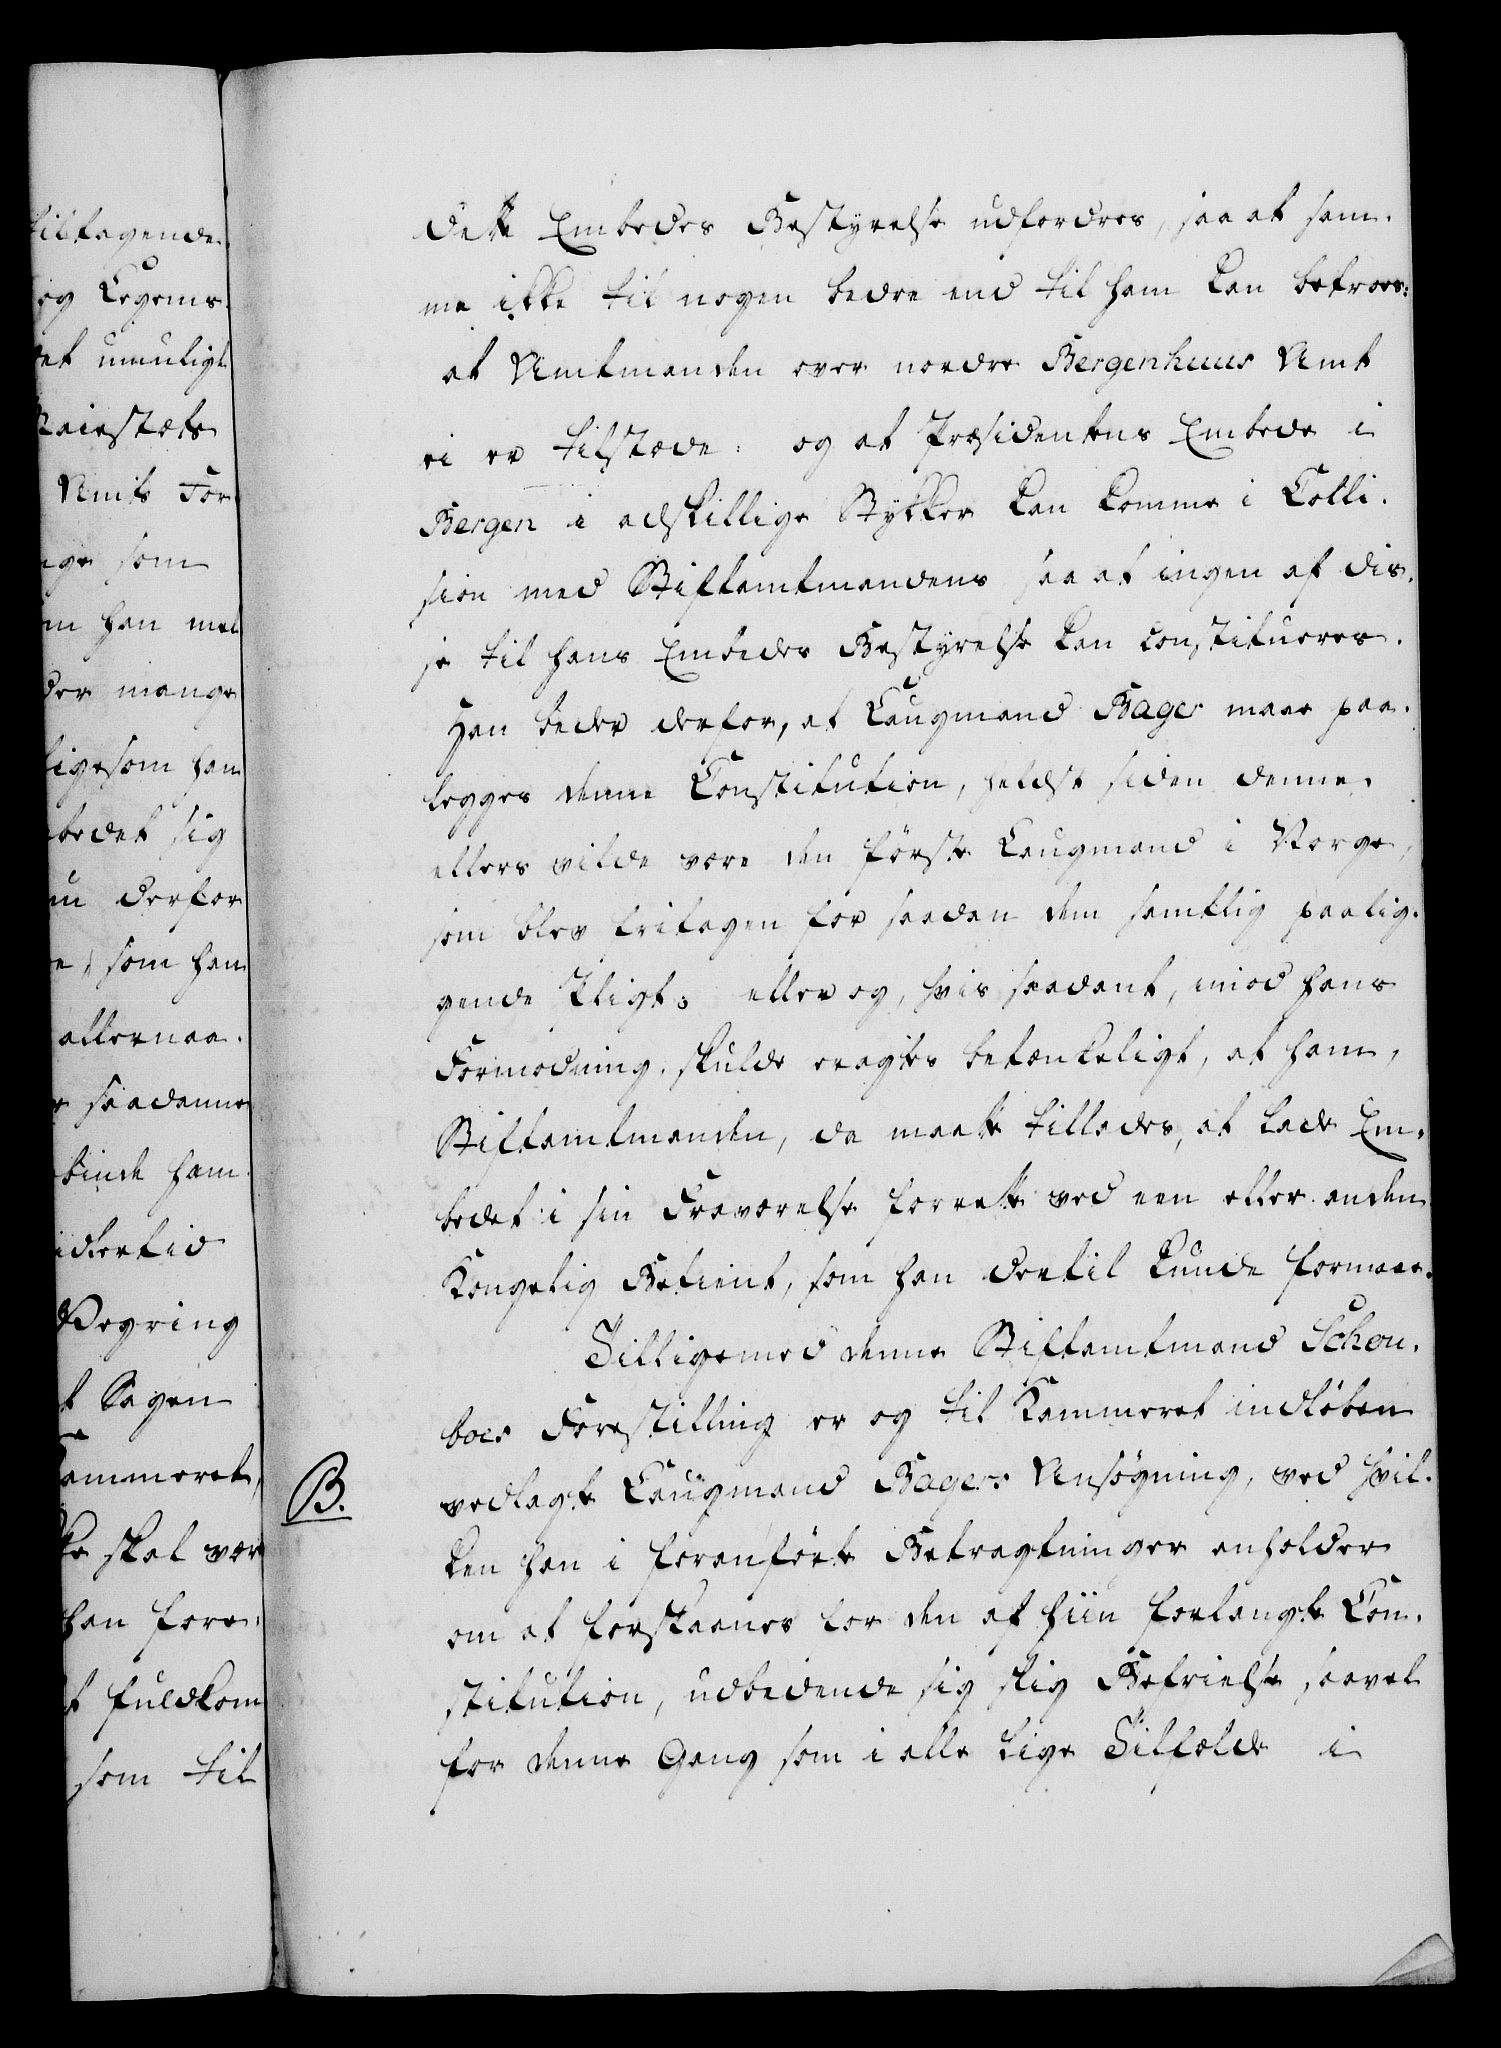 tiltagende
og Legems
et umuligt
Maiestæts
Amts For
nge som
m han mel
der mange
ligesom han
bedet sig
m derfor
e, som han
allernaa-
e saadanne
binde ham
idlertid
Vegring
t Sagen
Kammeret,
ke skal vær
han fore-
t fuldkom
som til
dette Embedes Bestyrelse udfordres, saa at sam-
me ikke til nogen bedre end til ham kan betroes:
at Amtmanden over nordre Bergenhuus Amt
ei er tilstæde: og at Præsidentens Embede i
Bergen i adskillige Stykker kan komme i Colli-
sion med Stiftamtmandens saa at ingen af dis-
se til hans Embedes Bestyrelse kan constitueres.
Han beder derfor, at Laugmand Bager maae paa-
legges denne Constitution, heldst siden denne
ellers vilde være den første Laugmand i Norge,
som blev fritagen for saadan dem samtlig paalig-
gende Pligt; eller og, hvis saadant, imod hans
Formodning, skulde eragtes betænkeligt, at ham,
Stiftamtmanden, da maatte tillades, at lade Em-
bedet i sin Fraværelse forrette ved een eller anden
Kongelig Betient, som han dertil kunde formaae.
Tilligemed denne Stiftamtmand Schou-
boes Forestilling er og til Kammeret indløben
B.
vedlagte Laugmand Bagers Ansøgning, ved hvil-
ken han i foranførte Betragtninger anholder
om at forskaanes for den af hiin forlangte Con-
stitution, udbedende sig slig Befrielse saavel
for denne Gang som i alle lige Tilfælde i